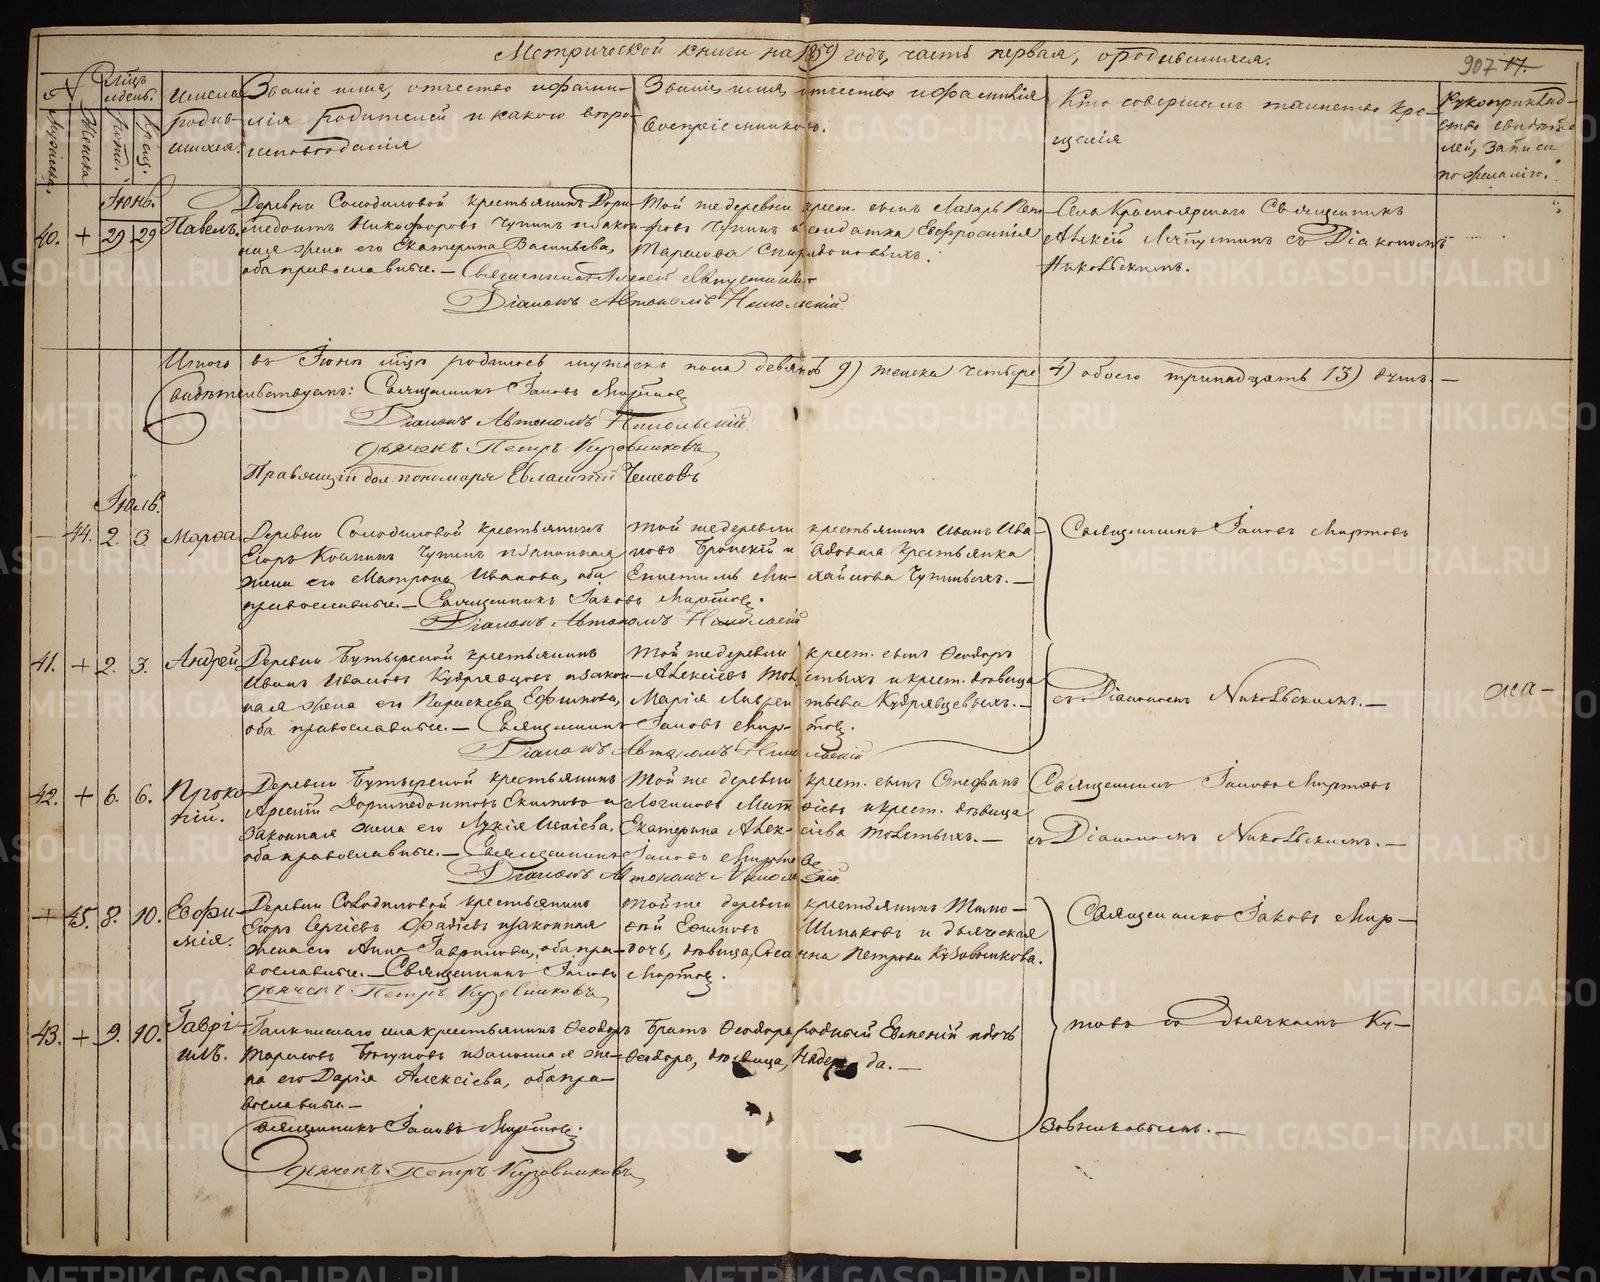 Метрической книги на 1859 годъ, часть первая, о родившихся.
907 17.
№
Мужеска. Женска.
Мѣцъ и день.
рожд. крещ.
Имена родив-
шихся.
Званіе имя, отчество и фами-
лія родителей и какого вѣро-
исповѣданія
Званіе, имя, отчество и фамилія
воспріемниковъ.
Кто совершалъ таинство кре-
щенія
Рукоприклад-
ство свидѣте-
лей, записи
по желанію.
Іюнь.
40. + 29 29 Павелъ.
Деревни Солодиловой крестьянинъ Дори-
медонтъ Никифоровъ Чупинъ и закон-
ная жена его Екатерина Васильева,
оба православные. — Священникъ Алексій
Діаконъ Автономъ Никольскій
Той же деревни крест. сынъ Лазарь
Чупинъ и солдатка Евфросинія
Тарасова Спиридоновыхъ.
Села Красноярскаго Священникъ
Алексій съ Діакономъ
Никольскимъ.
Итого въ Іюнѣ мцѣ родилось мужеска пола девять 9) женска четыре 4) обоего тринадцать 13) душъ. —
Свидѣтельствуемъ: Священникъ Іаковъ Мартовъ
Діаконъ Автономъ Никольскій
Дьячекъ Петръ Кузовниковъ
Правящій дол. пономаря Евлампій
Іюль.
— 44. 2. 3. Марѳа
Деревни Солодиловой крестьянинъ
Егоръ Козминъ Чупинъ и законная
жена его Матрона Иванова, оба
православные. — Священникъ Іаковъ Мартовъ.
Діаконъ Автономъ Никольскій
Той же деревни крестьянинъ Иванъ Ива-
новъ и вдовая крестьянка
Епистимъ Ми-хайлова Чупиныхъ. —
Священникъ Іаковъ Мартовъ
41. + 2. 3. Андрей
Деревни Бутырской крестьянинъ
Иванъ Ивановъ Кудрявцовъ и закон-
ная жена его Параскева Ефимова,
оба православные. — Священникъ Іаковъ Мар-товъ.
Діаконъ Автономъ Никольскій
Той же деревни крест. сынъ Ѳеодоръ
Алексіевъ Толстыхъ и крест. дѣвица
Марія Лаврентьева Кудрявцевыхъ. —
съ Діакономъ Никольскимъ. —
42. + 6. 6. Проко-
пій.
Деревни Бутырской крестьянинъ
Арсеній Доримедонтовъ Екимовъ и
законная жена его Лукія
оба православные. — Священникъ Іаковъ Мартовъ
Діаконъ Автономъ Никольскій
Той же деревни крест. сынъ Стефанъ
Логиновъ и крест. дѣвица
Екатерина Алек-сіева Толстыхъ. —
Священникъ Іаковъ Мартовъ
съ Діакономъ Никольскимъ. —
— 45. 8. 10. Евфи-
мія.
Деревни Солодиловой крестьянинъ
Егоръ Сергіевъ и законная
жена его Анна Гаврилова, оба пра-
вославные. — Священникъ Іаковъ Мартовъ.
Дьячекъ Петръ Кузовниковъ
Той же деревни крестьянинъ Тимо-
ѳей Ефимовъ и дьяческая
дочь, дѣвица, Петрова Кузовникова.
Священникъ Іаковъ Мар-
43. + 9. 10. Гаврі-
илъ.
села крестьянинъ Ѳеодоръ
Тарасовъ и законная же-
на его Дарія Алексіева, оба пра-
вославные. —
Священникъ Іаковъ Мартовъ.
Дьячекъ Петръ Кузовниковъ
Братъ Ѳеодора родный Евгеній и дочь
Ѳеодора, дѣвица, Надежда. —
товъ съ дьячкомъ Ку-
зовниковымъ. —
METRIKI.GASO-URAL.RU